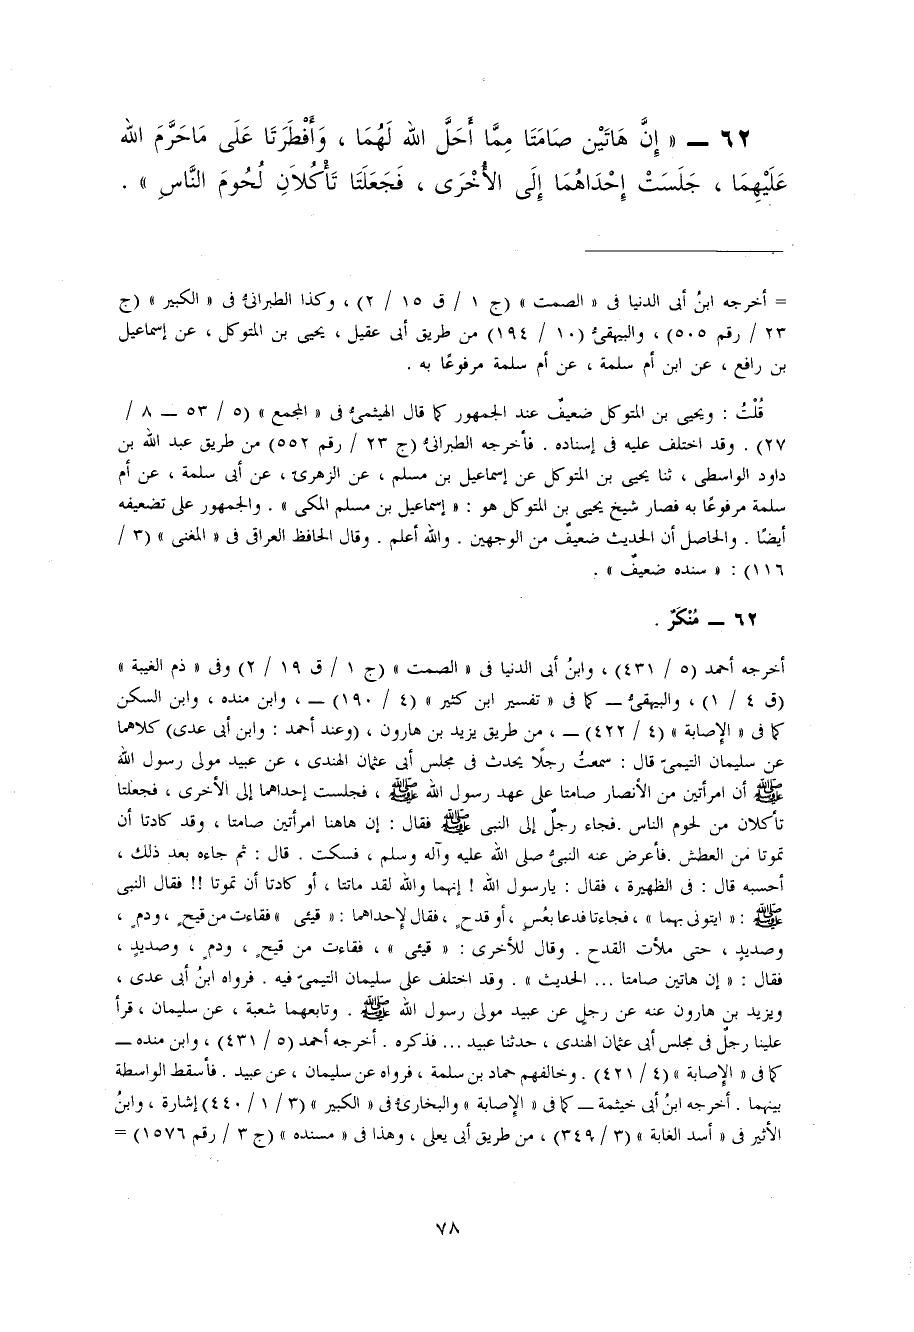 ٦٢ ــ « إِنَّ هَاتَيْنِ صَامَتَا مِمَّا أَحَلَّ الله لَهُمَا ، وَأَفْطَرَتَا عَلَى مَاحَرَّمَ الله
عَلَيْهِمَا ، جَلَسَتْ إِحْدَاهُمَا إِلَى الأُخْرَى ، فَجَعَلَتَا تَأْكُلاَنِ لُحُومَ النَّاسِ » .
= أخرجه ابنُ أبى الدنيا فى « الصمت » (ج ١ / ق ١٥ / ٢) ، وكذا الطبرانىُّ فى « الكبير » (ج
٢٣ / رقم ٥٠٥) ، والبيهقىُّ (١٠ / ١٩٤) من طريق أبى عقيل ، يحيى بن المتوكل ، عن إسماعيل
بن رافع ، عن ابن أم سلمة ، عن أم سلمة مرفوعًا به .
قُلْتُ : ويحيى بن المتوكل ضعيفٌ عند الجمهور كما قال الهيثمىُّ فى « المجمع » (٥ / ٥٣ ــ ٨ /
٢٧) . وقد اختلف عليه فى إسناده . فأخرجه الطبرانىُّ (ج ٢٣ / رقم ٥٥٢) من طريق عبد الله بن
داود الواسطى ، ثنا يحيى بن المتوكل عن إسماعيل بن مسلم ، عن الزهرى ، عن أبى سلمة ، عن أم
سلمة مرفوعًا به فصار شيخ يحيى بن المتوكل هو : « إسماعيل بن مسلم المكى » . والجمهور على تضعيفه
أيضًا . والحاصل أن الحديث ضعيفٌ من الوجهين . والله أعلم . وقال الحافظ العراقى فى « المغنى » (٣ /
١١٦) : « سنده ضعيفٌ » .
٦٢ ــ مُنْكَرٌ .
أخرجه أحمد (٥ / ٤٣١) ، وابنُ أبى الدنيا فى « الصمت » (ج ١ / ق ١٩ / ٢) وفى « ذم الغيبة »
(ق ٤ / ١) ، والبيهقىُّ ــ كما فى « تفسير ابن كثير » (٤ / ١٩٠) ــ ، وابن منده ، وابن السكن
كما فى « الإصابة » (٤ / ٤٢٢) ــ ، من طريق يزيد بن هارون ، (وعند أحمد : وابن أبى عدى) كلاهما
عن سليمان التيمىّ قال : سمعتُ رجلًا يحدث فى مجلس أبى عثمان الهندى ، عن عبيد مولى رسول الله
ﷺ أن امرأتين من الأنصار صامتا على عهد رسول الله ﷺ ، فجلست إحداهما إلى الأخرى ، فجعلتا
تأكلان من لحوم الناس .فجاء رجلٌ إلى النبى ﷺ فقال : إن هاهنا امرأتين صامتا ، وقد كادتا أن
تموتا من العطش .فأعرض عنه النبىُّ صلى الله عليه وآله وسلم ، فسكت . قال : ثم جاءه بعد ذلك ،
أحسبه قال : فى الظهيرة ، فقال : يارسول الله ! إنهما والله لقد ماتتا ، أو كادتا أن تموتا !! فقال النبى
ﷺ : « ايتونى بهما » ، فجاءتا فدعا بعُسٍ ، أو قدحٍ ، فقال لإحداهما : « قيئى » فقاءت من قيحٍ ، ودم ،
وصديدٍ ، حتى ملأت القدح . وقال للأخرى : « قيئى » ، فقاءت من قيحٍ ، ودمٍ ، وصديدٍ ،
فقال : « إن هاتين صامتا ... الحديث » . وقد اختلف على سليمان التيمىّ فيه . فرواه ابنُ أبى عدى ،
ويزيد بن هارون عنه عن رجلٍ عن عبيد مولى رسول الله ﷺ . وتابعهما شعبة ، عن سليمان ، قرأ
علينا رجلٌ فى مجلس أبى عثمان الهندى ، حدثنا عبيد ... فذكره . أخرجه أحمد (٥ / ٤٣١) ، وابن منده ــ
كما فى « الإصابة » (٤ / ٤٢١) . وخالفهم حماد بن سلمة ، فرواه عن سليمان ، عن عبيد . فأسقط الواسطة
بينهما . أخرجه ابنُ أبى خيثمة ــ كما فى « الإصابة » والبخارىُّ فى « الكبير » (٣ / ١ / ٤٤٠) إشارة ، وابنُ
الأثير فى « أسد الغابة » (٣ / ٣٤٩) ، من طريق أبى يعلى ، وهذا فى « مسنده » (ج ٣ / رقم ١٥٧٦) =
٧٨